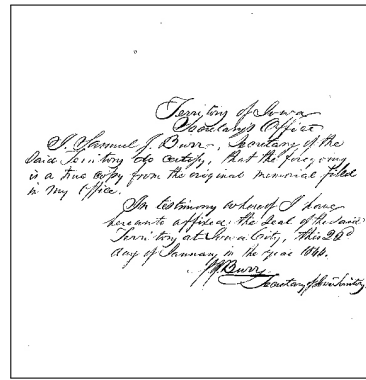 Territory of Iowa
Secretarys Office
I. Samuel J. Burr, Secretary of the
Said Territory do certify, that the foregoing
is a true copy from the original memorial filed
in my office.
In testimony whereof I have
hereunto affixed the Seal of the said
Territory at Iowa City, this 29d
day of January in the year 1844.
S J Burr
Secretary of Iowa Territory